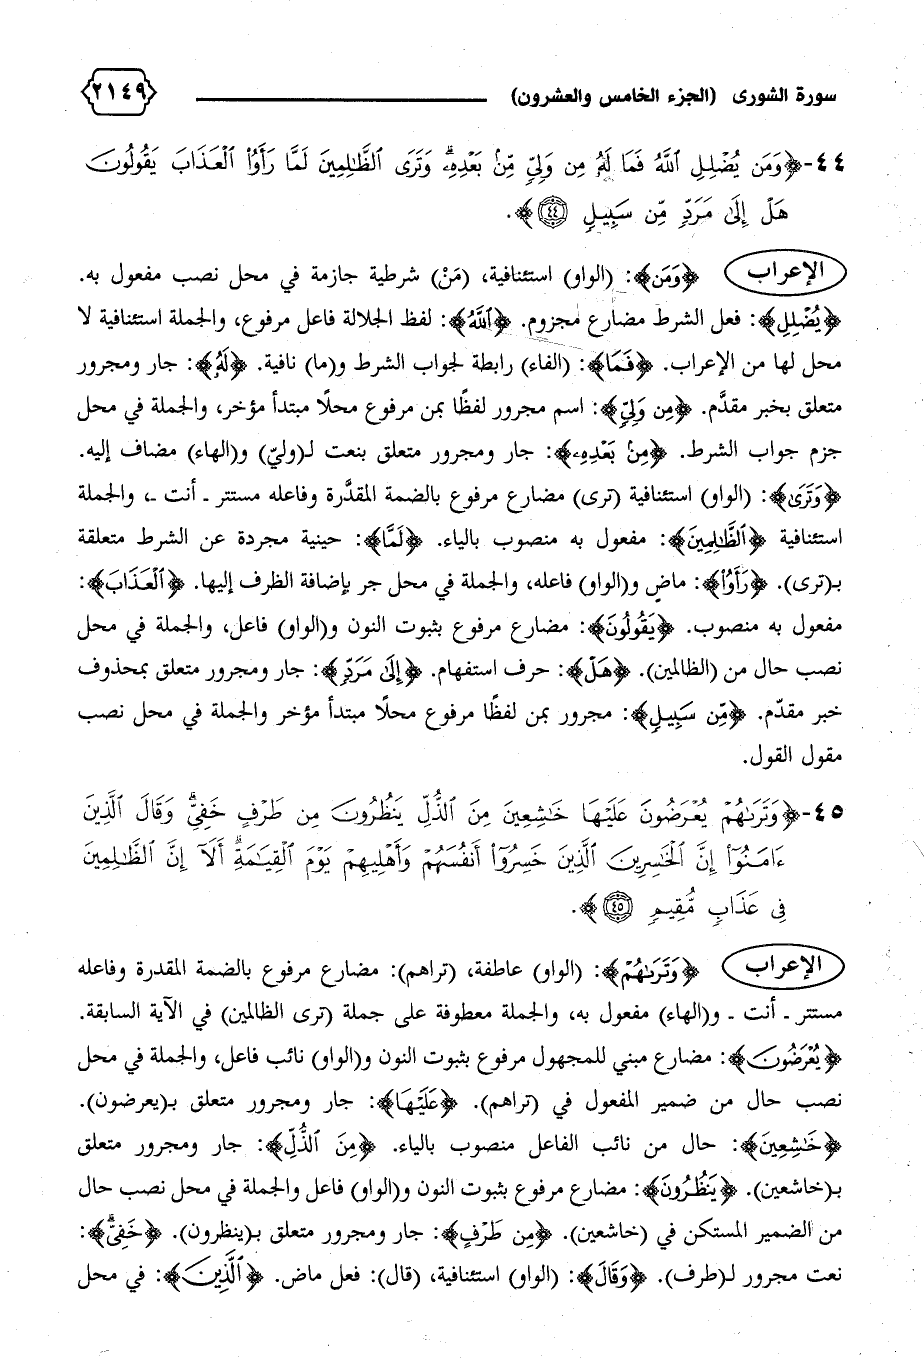 سورة الشورى (الجزء الخامس والعشرون) ٢١٤٩
٤٤- ﴿وَمَن يُضْلِلِ ٱللَّهُ فَمَا لَهُۥ مِن وَلِيٍّ مِّنۢ بَعْدِهِۦ ۗ وَتَرَى ٱلظَّـٰلِمِينَ لَمَّا رَأَوُا۟ ٱلْعَذَابَ يَقُولُونَ
هَلْ إِلَىٰ مَرَدٍّ مِّن سَبِيلٍ ٤٤﴾.
الإعراب ﴿وَمَن﴾: (الواو) استئنافية، (مَنْ) شرطية جازمة في محل نصب مفعول به.
﴿يُضْلِلِ﴾: فعل الشرط مضارع مجزوم. ﴿ٱللَّهُ﴾: لفظ الجلالة فاعل مرفوع، والجملة استئنافية لا
محل لها من الإعراب. ﴿فَمَا﴾: (الفاء) رابطة لجواب الشرط و(ما) نافية. ﴿لَهُۥ﴾: جار ومجرور
متعلق بخبر مقدَّم. ﴿مِن وَلِيٍّ﴾: اسم مجرور لفظًا بمن مرفوع محلًا مبتدأ مؤخر، والجملة في محل
جزم جواب الشرط. ﴿مِنۢ بَعْدِهِۦ﴾: جار ومجرور متعلق بنعت لـ(وليّ) و(الهاء) مضاف إليه.
﴿وَتَرَى﴾: (الواو) استئنافية (ترى) مضارع مرفوع بالضمة المقدَّرة وفاعله مستتر ـ أنت ـ، والجملة
استئنافية ﴿ٱلظَّـٰلِمِينَ﴾: مفعول به منصوب بالياء. ﴿لَمَّا﴾: حينية مجردة عن الشرط متعلقة
بـ(ترى). ﴿رَأَوُا۟﴾: ماض و(الواو) فاعله، والجملة في محل جر بإضافة الظرف إليها. ﴿ٱلْعَذَابَ﴾:
مفعول به منصوب. ﴿يَقُولُونَ﴾: مضارع مرفوع بثبوت النون و(الواو) فاعل، والجملة في محل
نصب حال من (الظالمين). ﴿هَلْ﴾: حرف استفهام. ﴿إِلَىٰ مَرَدٍّ﴾: جار ومجرور متعلق بمحذوف
خبر مقدّم. ﴿مِّن سَبِيلٍ﴾: مجرور بمن لفظًا مرفوع محلًا مبتدأ مؤخر والجملة في محل نصب
مقول القول.
٤٥- ﴿وَتَرَىٰهُمْ يُعْرَضُونَ عَلَيْهَا خَـٰشِعِينَ مِنَ ٱلذُّلِّ يَنظُرُونَ مِن طَرْفٍ خَفِىٍّ ۗ وَقَالَ ٱلَّذِينَ
ءَامَنُوٓا۟ إِنَّ ٱلْخَـٰسِرِينَ ٱلَّذِينَ خَسِرُوٓا۟ أَنفُسَهُمْ وَأَهْلِيهِمْ يَوْمَ ٱلْقِيَـٰمَةِ ۗ أَلَآ إِنَّ ٱلظَّـٰلِمِينَ
فِى عَذَابٍ مُّقِيمٍ ٤٥﴾.
الإعراب ﴿وَتَرَىٰهُمْ﴾: (الواو) عاطفة، (تراهم): مضارع مرفوع بالضمة المقدرة وفاعله
مستتر ـ أنت ـ و(الهاء) مفعول به، والجملة معطوفة على جملة (ترى الظالمين) في الآية السابقة.
﴿يُعْرَضُونَ﴾: مضارع مبني للمجهول مرفوع بثبوت النون و(الواو) نائب فاعل، والجملة في محل
نصب حال من ضمير المفعول في (تراهم). ﴿عَلَيْهَا﴾: جار ومجرور متعلق بـ(يعرضون).
﴿خَـٰشِعِينَ﴾: حال من نائب الفاعل منصوب بالياء. ﴿مِنَ ٱلذُّلِّ﴾: جار ومجرور متعلق
بـ(خاشعين). ﴿يَنظُرُونَ﴾: مضارع مرفوع بثبوت النون و(الواو) فاعل والجملة في محل نصب حال
من الضمير المستكن في (خاشعين). ﴿مِن طَرْفٍ﴾: جار ومجرور متعلق بـ(ينظرون). ﴿خَفِىٍّ ۗ﴾:
نعت مجرور لـ(طرف). ﴿وَقَالَ﴾: (الواو) استئنافية، (قال): فعل ماض. ﴿ٱلَّذِينَ﴾: في محل